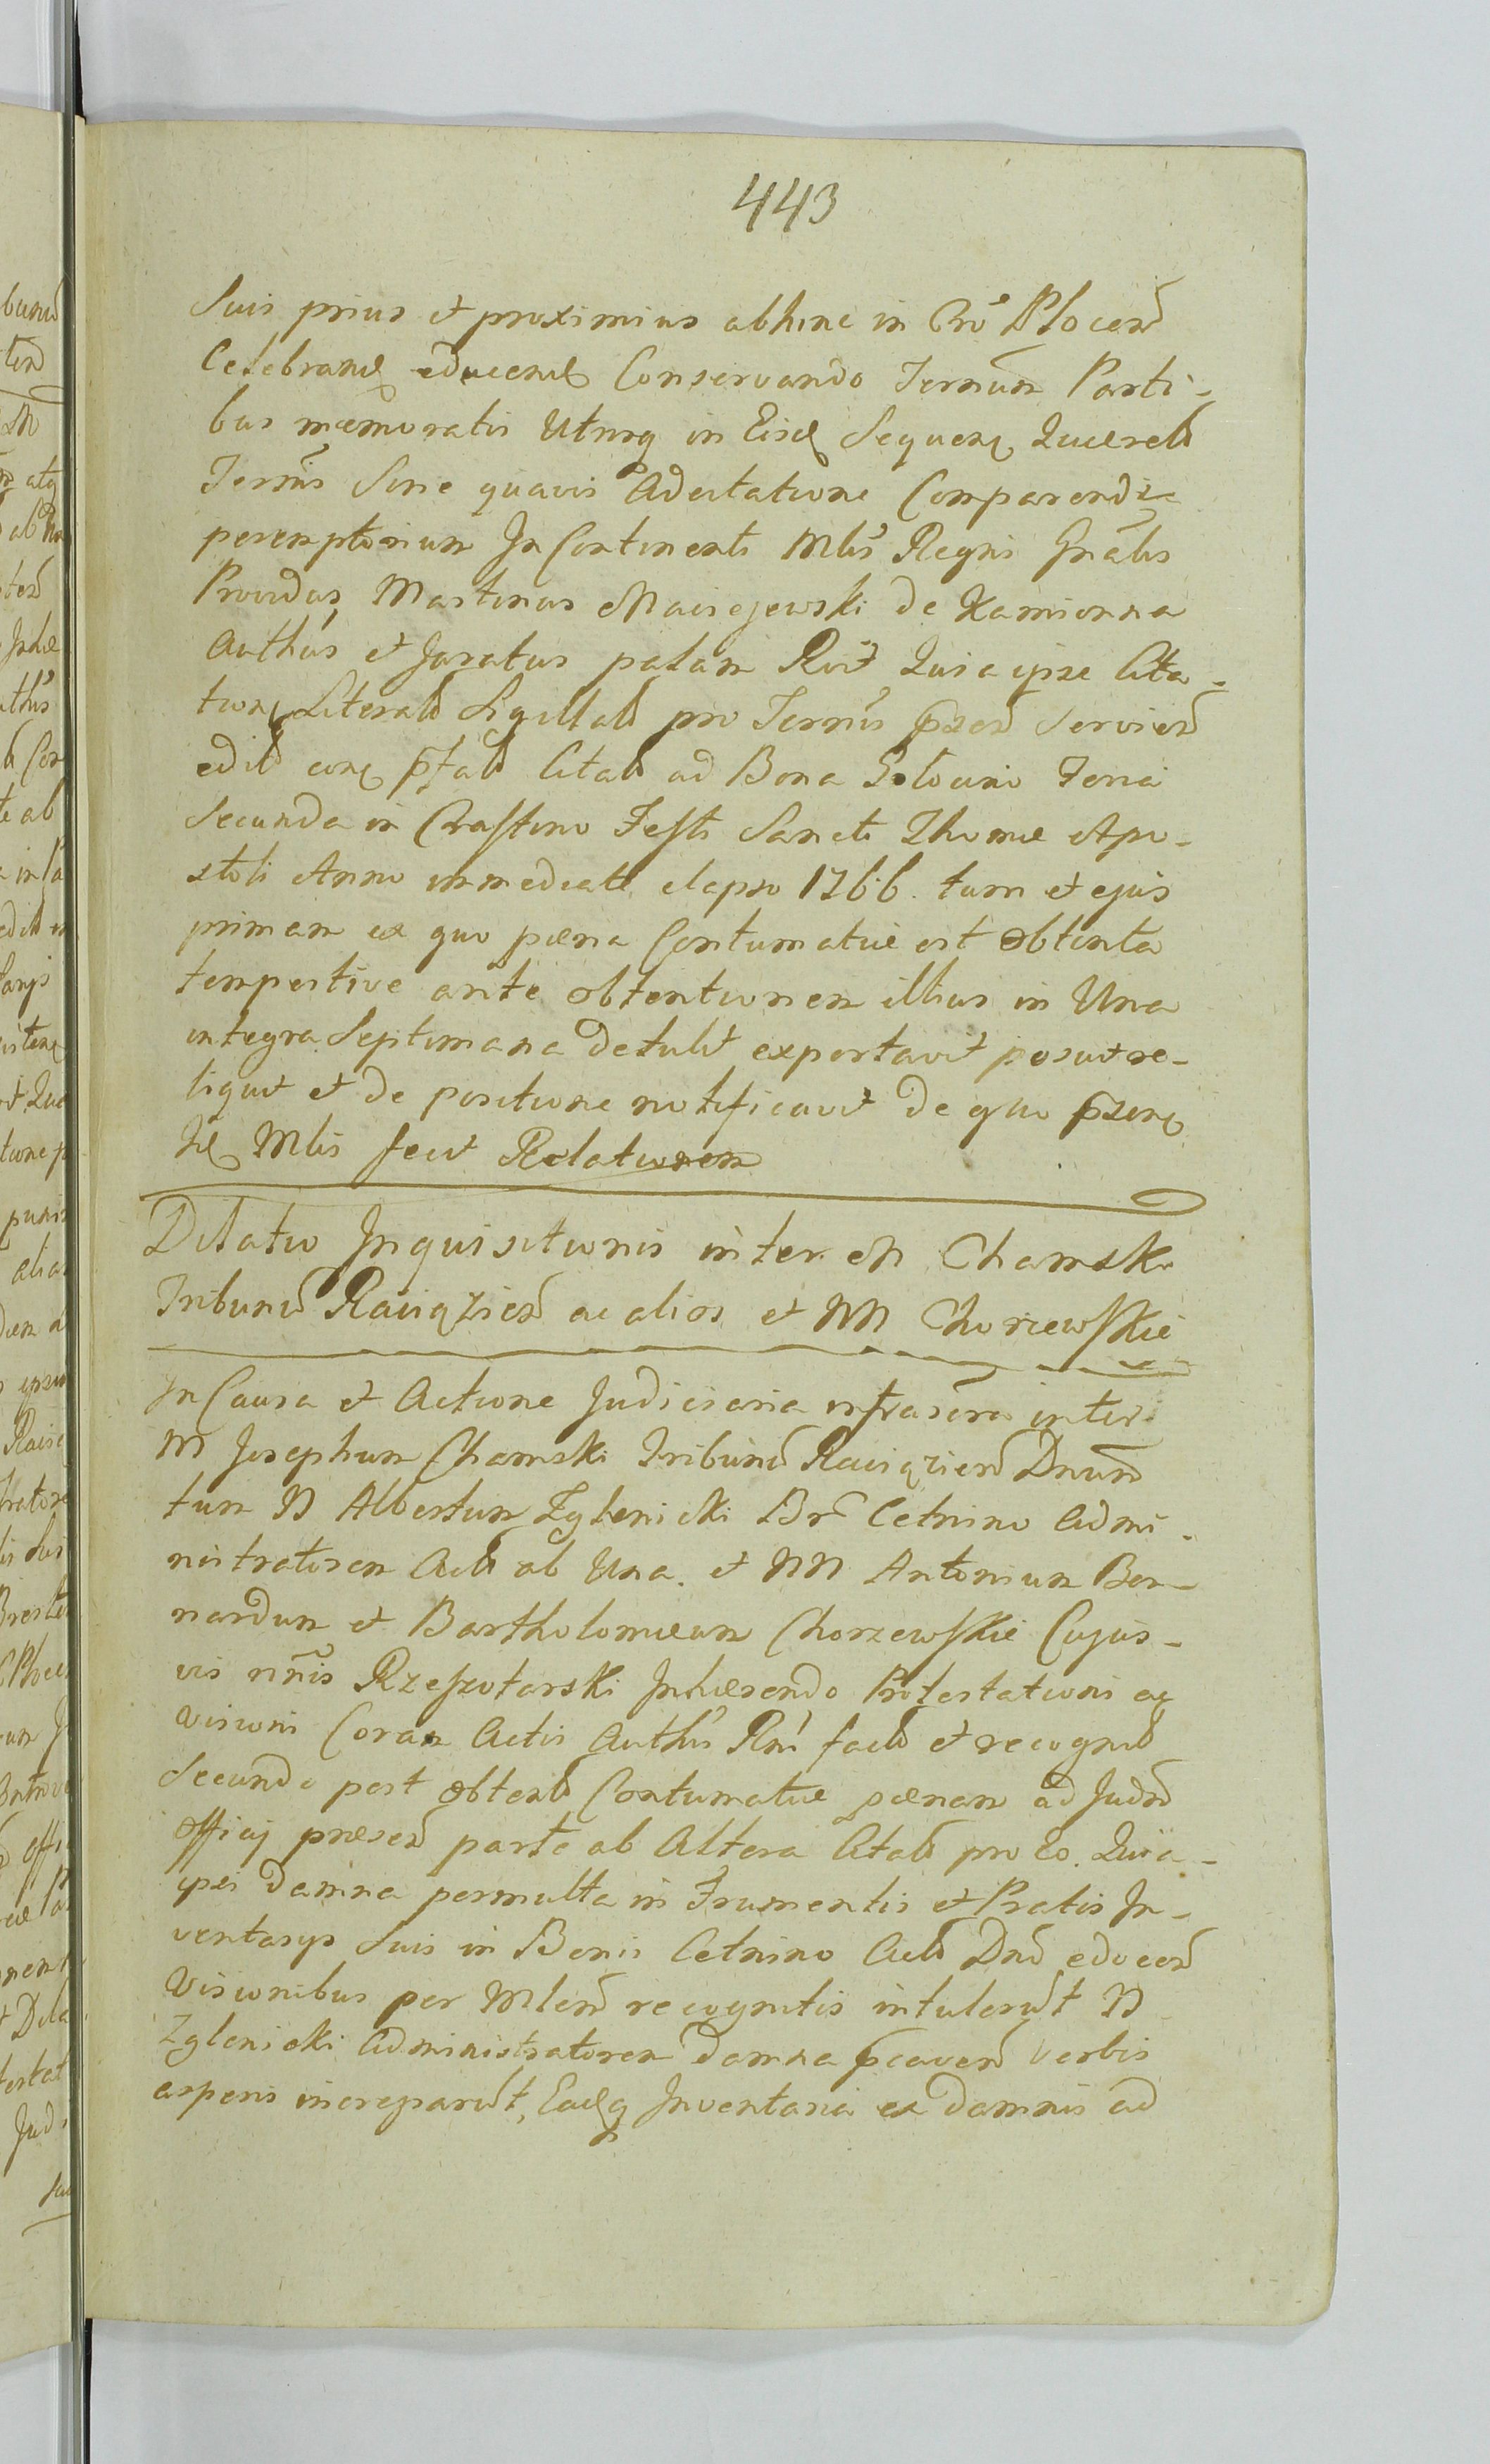 443
Suis prius et proximius abhinc in Cro Plocen
Celebrand educend Conservando Termum Parti-
bus memoratis Utrisq in Eisd Sequen Querel
Termis Sine quavis Adcitatione Comparendi
peremptorium In Continenti Mlis Regni Gnalis
Providus Martinus Maciejewski de Kamionna
Authus et Juratus palam Rvit Quia ipse Cita-
tion Literal Sigillat pro Termis pzen Servien
edit eor pfat Citat ad Bona Golocino Feria
Secunda in Crastino Festi Sancti Thomae Apo-
stoli Anno immediate elapso 1766. tum et ejus
primam ex quo paena Contumatiae est obtenta
tempestive ante obtentionem illius in Una
integra Septimana detulit exportavit posuit re-
liquit et de positione notificavit de quo pzen
Id Mlis fecit Relationem
Dilatio Inquisitionis inter M Chamski
Tribunu Raciązien ac alios et NN Chorzewskie
In Causa et Actione Judiciaria infrascra inter
M Josephum Chamski Tribunu Raciązien Dnum
tum N Albertum Zglenicki Br Cetnino Admi-
nistratorem Act ab Una. et NN Antonium Ber-
nardum et Bartholomeum Chorzewskie Cujus-
vis nnis Rzeszotarski Inhaerendo Protestationi ac
Visioni Coram Actis Authis Rni fact et recognit
Secundo post obtent Contumatiae paenam ad Judm
Officij praesen parte ab Altera Citat pro Eo. Quia
ipsi damna permulta in Frumentis et Pratis In-
ventarys Suis in Bonis Cetnino Act Dni edocen
Visionibus per Mlem recognitis intulerut N
Zglenicki Administratorem damna pcaven verbis
asperis increparut, Eadq Inventaria ex damnis ad